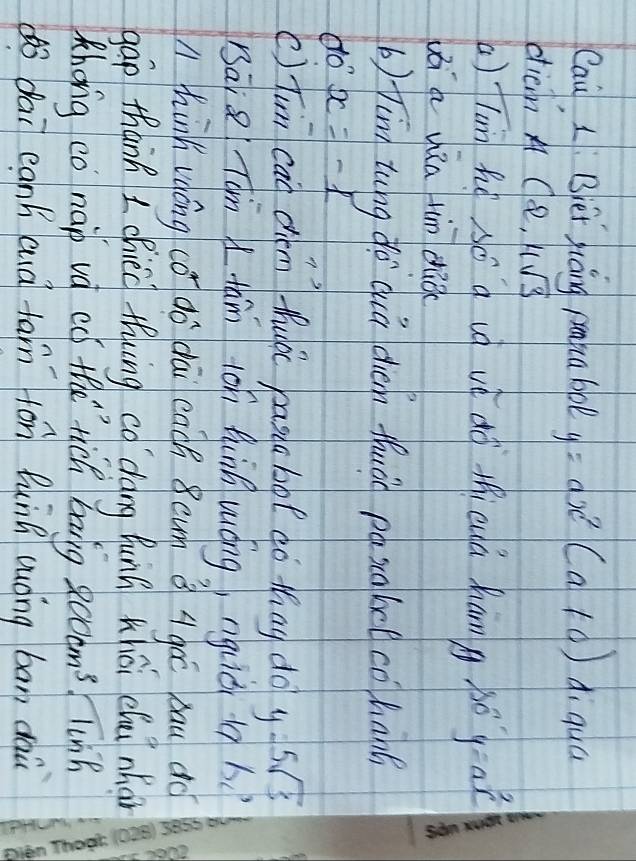 Câu 1: Biết rằng parabol y = ax² (a ≠ 0) đi qua
điểm A (2, 4√3
a) Tìm hệ số a và vẽ đồ thị của hàm số y = ax²
với a vừa tìm được
b) Tìm tung độ của điểm thuộc parabol có hành
độ x = -1
c) Tìm các điểm thuộc parabol có thay độ y = 5√3
Bài 2: Từ 1 tấm tôn hình vuông, người ta
1 hình vuông có độ dài cách 8cm ở 4 góc sau đó
gấp thành 1 chiếc thùng có dạng hình khối chữ nhật
không có nắp và có thể tích bằng 200cm³. Tính
độ dài cạnh của tấm tôn hình vuông ban đầu
Sản xuất
TPHCM,
Điện Thoại: (028) 3855
2902